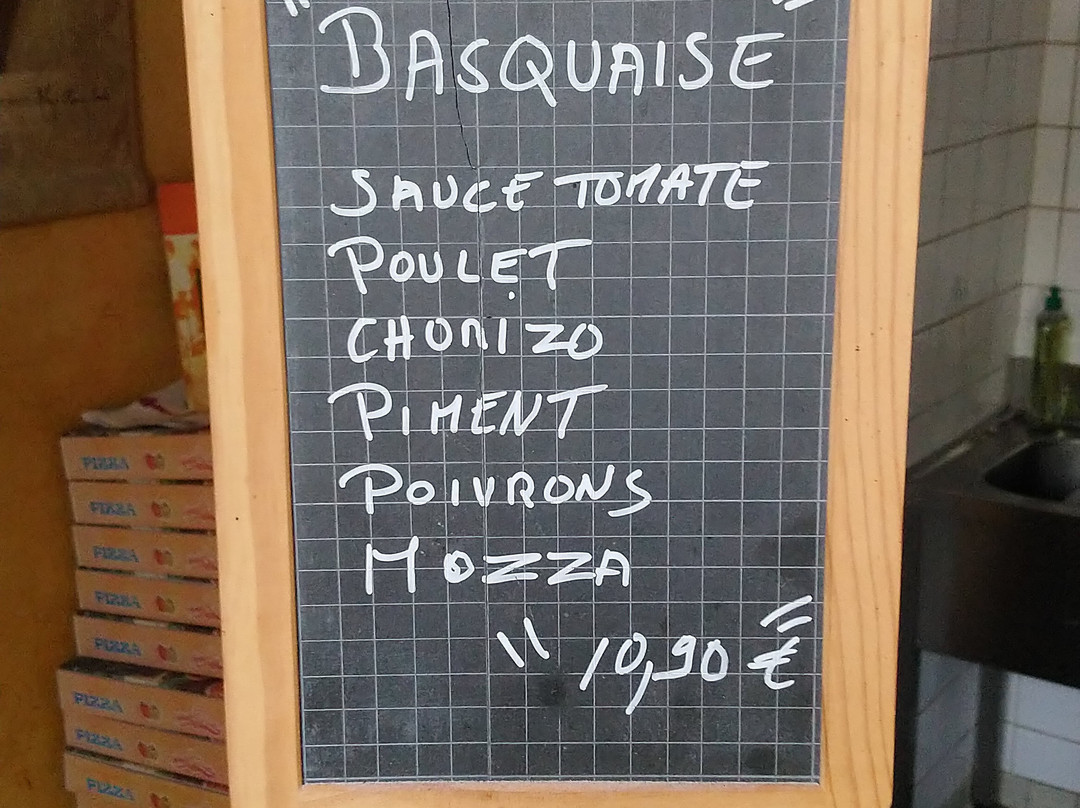 BASQUAISE
SAUCE TOMATE
POULET
CHORIZO
PIMENT
POIVRONS
MOZZA
" 10,90 € "
PIZZA
PIZZA
PIZZA
PIZZA
PIZZA
PIZZA
PIZZA
PIZZA